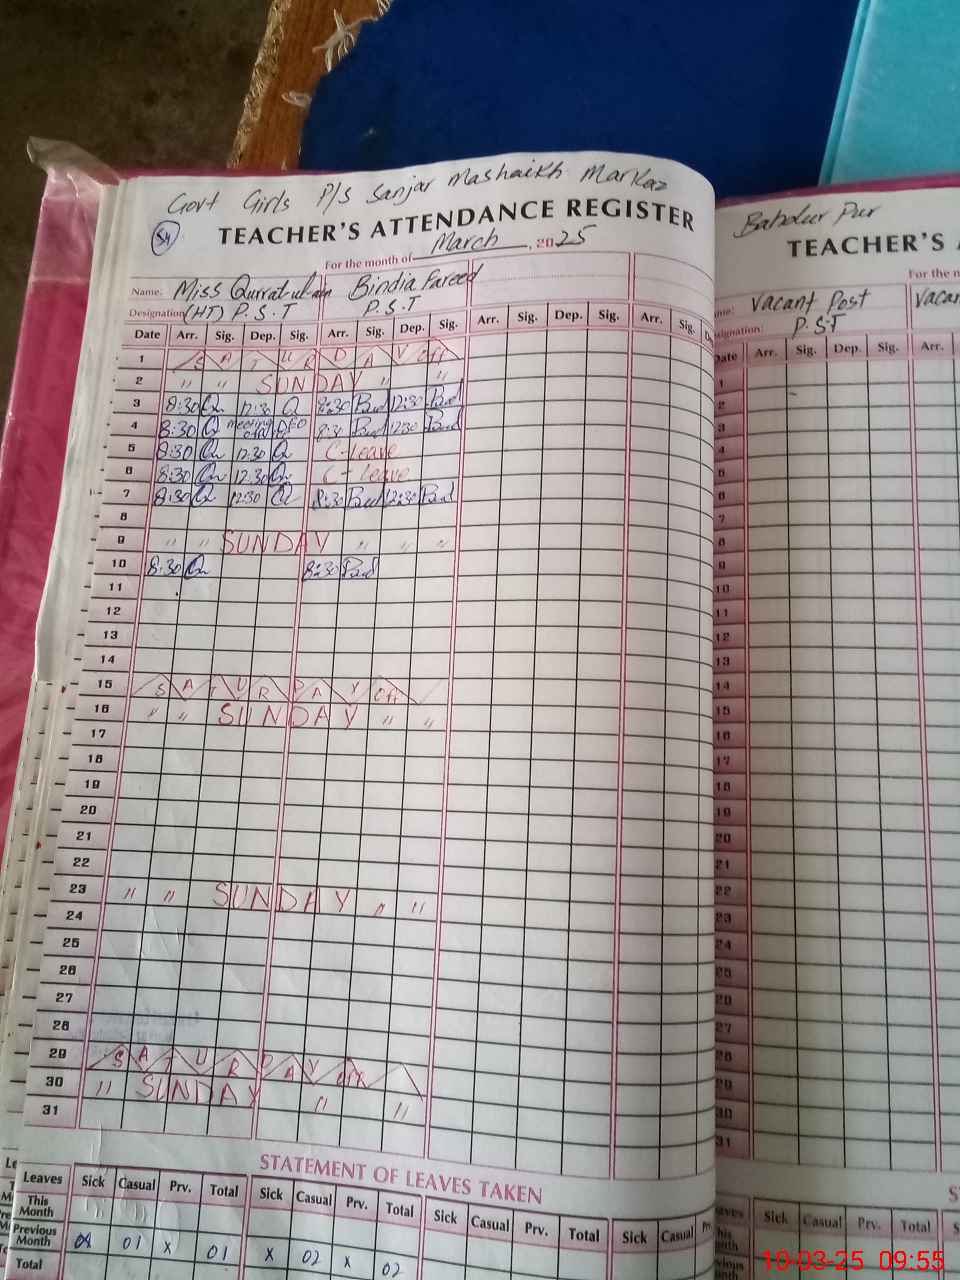 Govt Girls P/S Sanjar Mashaikh Markaz
54
TEACHER'S ATTENDANCE REGISTER
For the month of March, 2025
Name: Miss Qurrat-ul-ain Bindia Fareed
Designation: (HT) P.S.T P.S.T
Date Arr. Sig. Dep. Sig. Arr. Sig. Dep. Sig. Arr. Sig. Dep. Sig. Arr. Sig.
1 SATURDAY off
2 " " SUNDAY " "
3 8:30 12:30 8:30 12:30
4 8:30 meeting DEO 8:30 12:30
5 8:30 12:30 C-Leave
6 8:30 12:30 C-Leave
7 8:30 12:30 8:30 12:30
8
9 " " SUNDAY " " "
10 8:30 8:30
11
12
13
14
15 SATURDAY off
16 " " SUNDAY " "
17
18
19
20
21
22
23 " " SUNDAY " "
24
25
26
27
28
29 SATURDAY off
30 " SUNDAY " "
31
STATEMENT OF LEAVES TAKEN
Leaves Sick Casual Prv. Total Sick Casual Prv. Total Sick Casual Prv. Total Sick Casual
This Month
Previous Month 01 x 01 x 02 x 02
Total
Bahdur Pur
TEACHER'S
For the
Vacant Post
P.S.T
Date Arr. Sig. Dep. Sig. Arr.
1
2
3
4
5
6
7
8
9
10
11
12
13
14
15
16
17
18
19
20
21
22
23
24
25
26
27
28
29
30
31
Sick Casual Prv. Total Sick
10-03-25 09:55